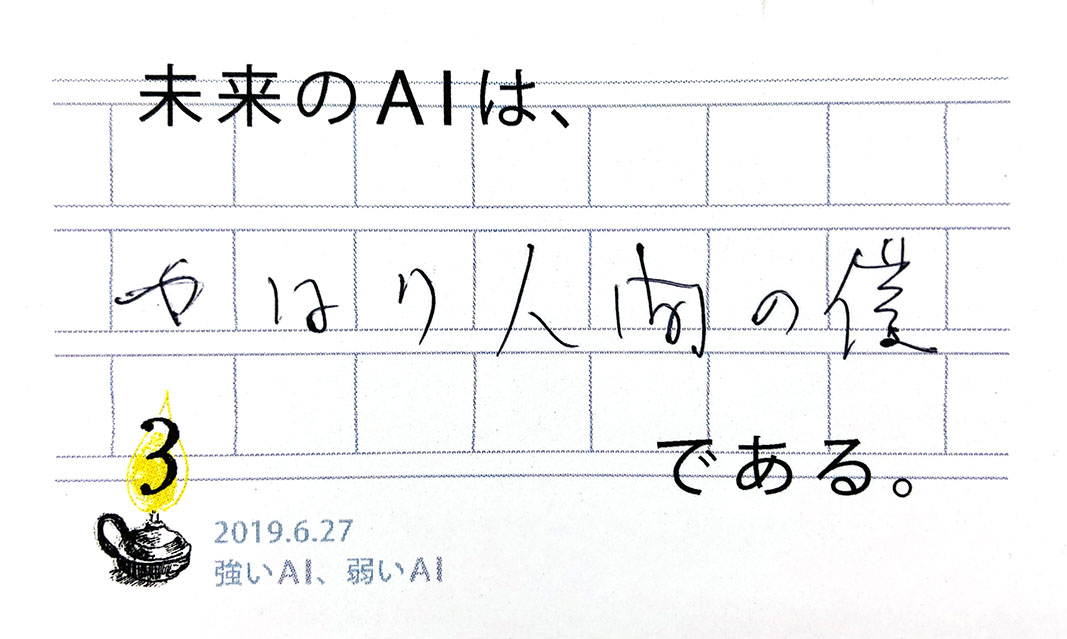 未来のAIは、
やはり人間の僕
である。
3
2019.6.27
強いAI、弱いAI